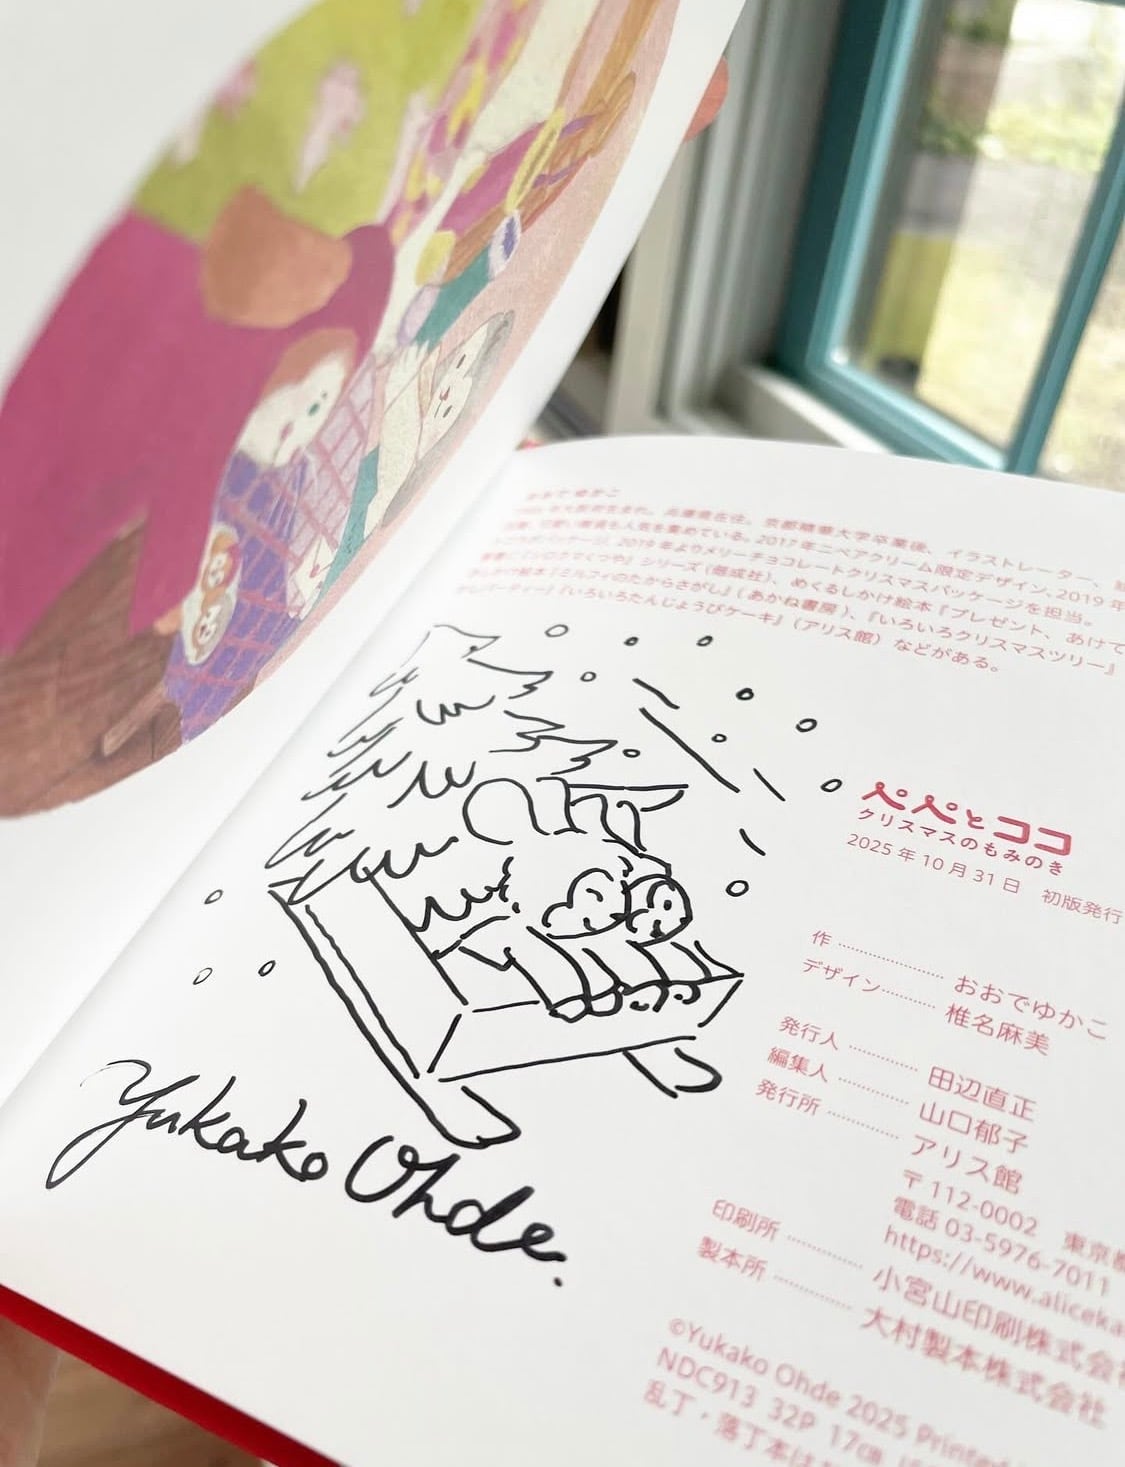 おおでゆかこ
大阪府生まれ。兵庫県在住。京都精華大学卒業後、イラストレーター、
可愛い雑貨も人気を集めている。2017年ニベアクリーム限定デザイン、2019年
パッケージ、2019年よりメリーチョコレートクリスマスパッケージを担当。
シロクマくつや』シリーズ（偕成社）、めくるしかけ絵本『プレゼント、あけて
しかけ絵本『ミルフィのたからさがし』（あかね書房）、『いろいろクリスマスツリー』
パーティー』『いろいろたんじょうびケーキ』（アリス館）などがある。
ペペとココ
クリスマスのもみのき
2025年10月31日 初版発行
作 ………… おおでゆかこ
デザイン ………… 椎名麻美
発行人 ………… 田辺直正
編集人 ………… 山口郁子
発行所 ………… アリス館
〒112-0002 東京都
電話 03-5976-7011
https://www.aliceka
印刷所 ………… 小宮山印刷株式会社
製本所 ………… 大村製本株式会社
©Yukako Ohde 2025 Printed
NDC913 32P 17㎝
乱丁・落丁本は
Yukako Ohde.